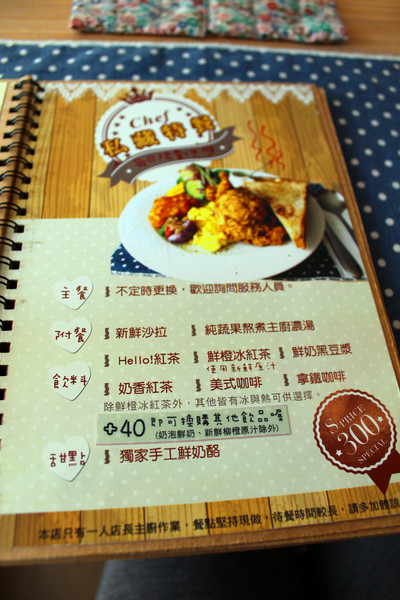 Chef
私藏特餐
主餐
不定時更換，歡迎詢問服務人員。
附餐
新鮮沙拉 純蔬果熬煮主廚濃湯
飲料
Hello!紅茶 鮮橙冰紅茶 鮮奶黑豆漿
使用新鮮原汁
奶香紅茶 美式咖啡 拿鐵咖啡
除鮮橙冰紅茶外，其他皆有冰與熱可供選擇。
+40 即可換購其他飲品喔
(奶泡鮮奶、新鮮柳橙原汁除外)
S PRICE
300
SPECIAL
甜點
獨家手工鮮奶酪
本店只有一人店長主廚作業，餐點堅持現做，待餐時間較長，請多加體諒